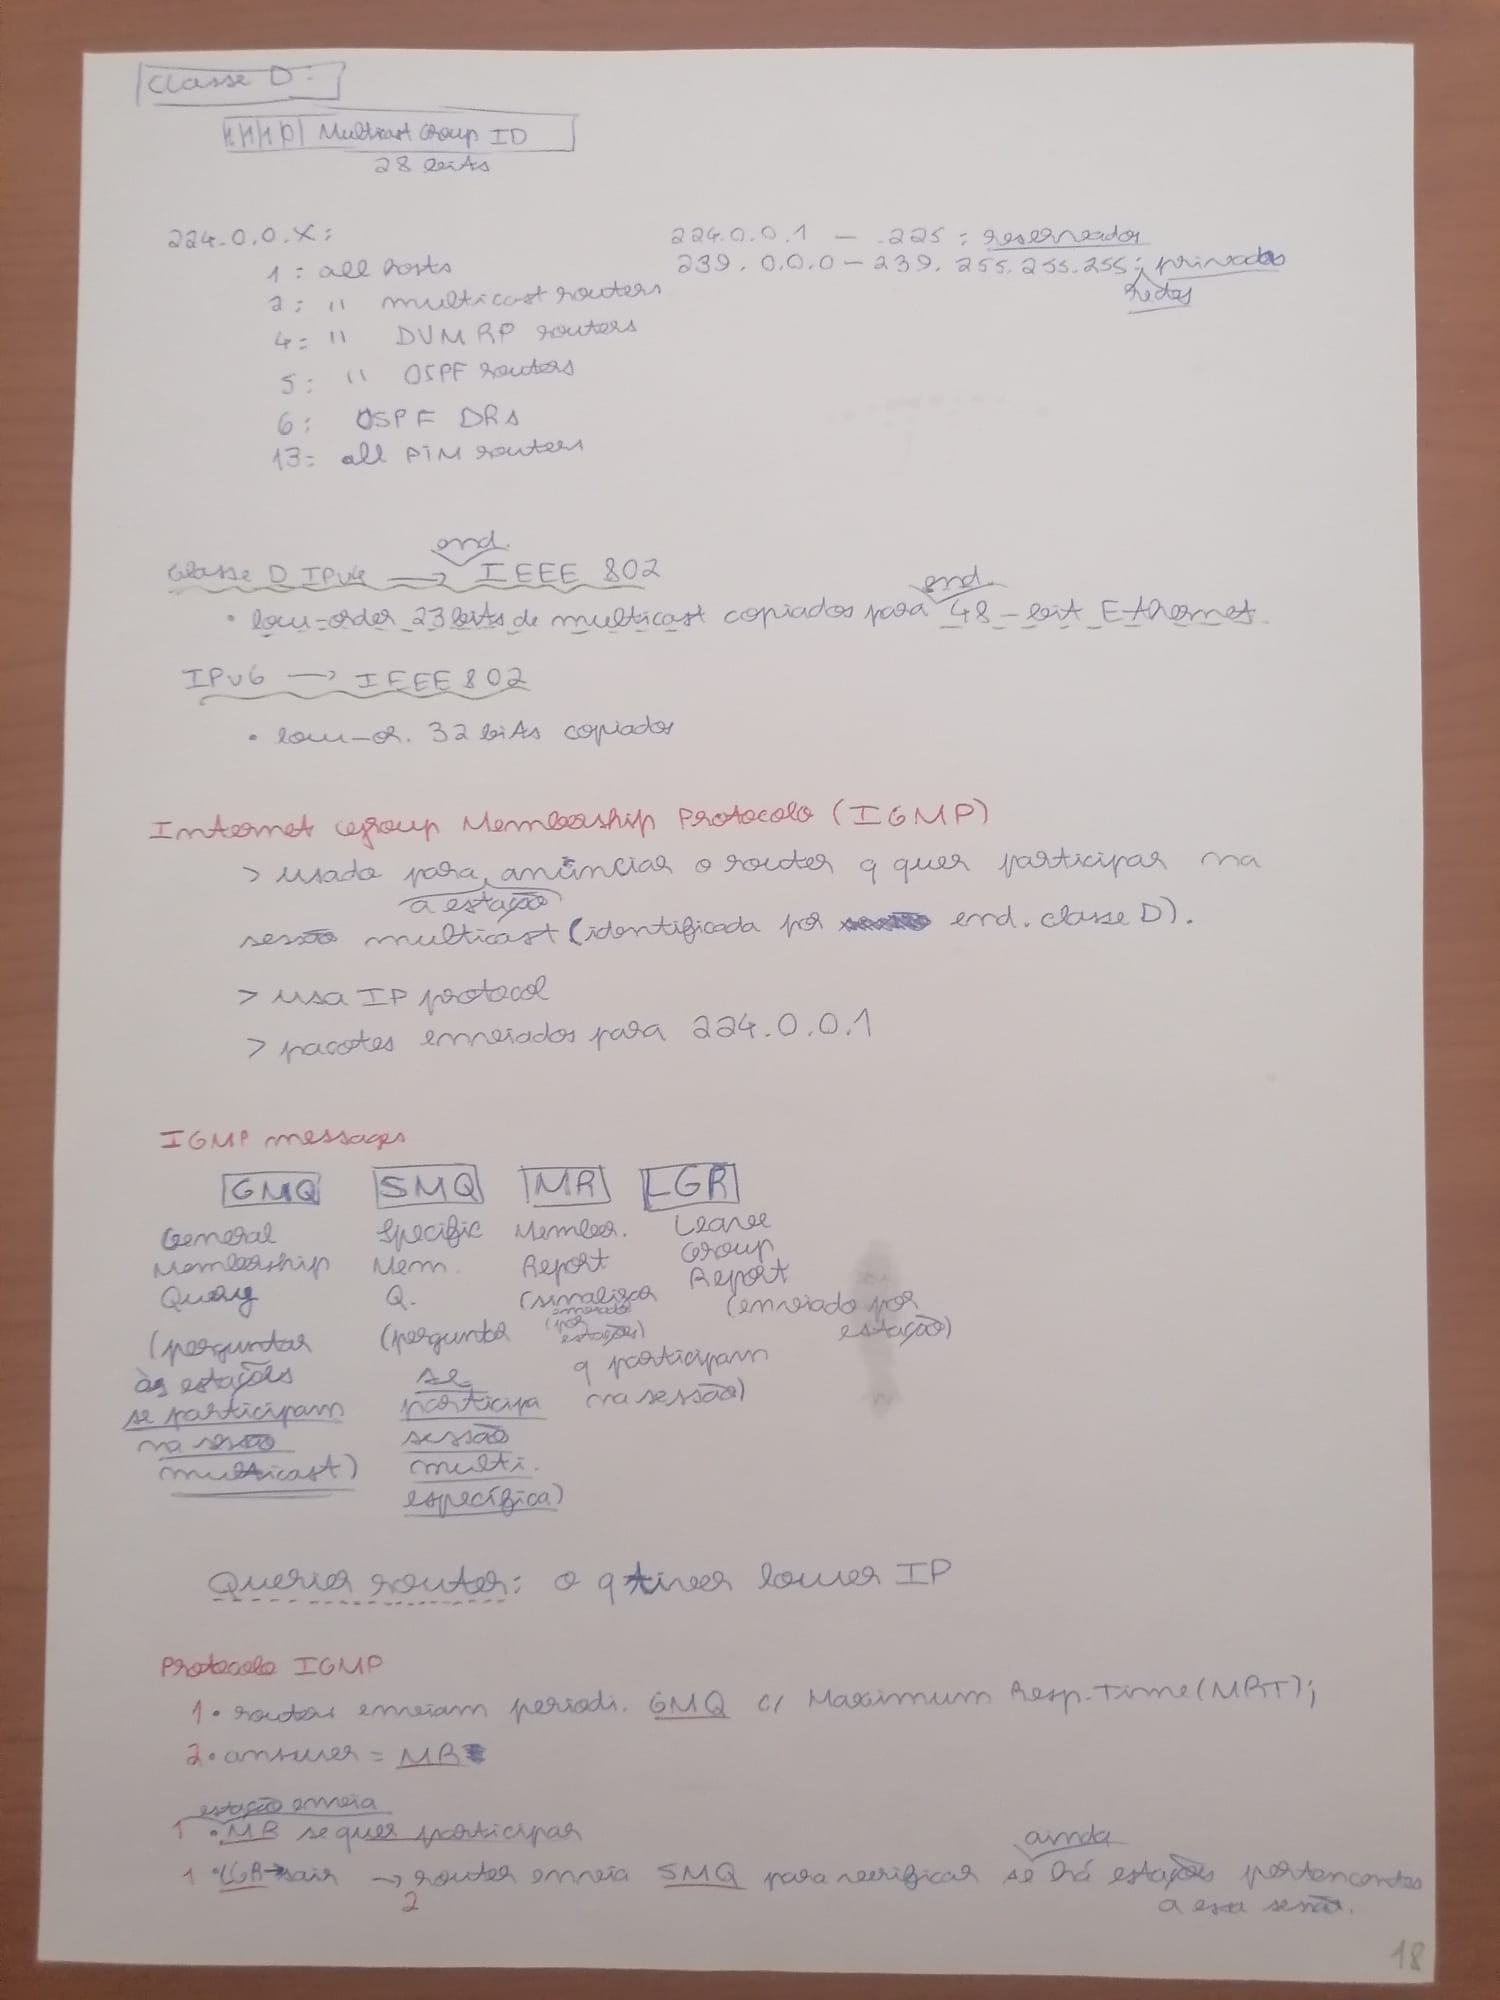 Classe D:
1110 Multicast Group ID
28 bits
224.0.0.X:
1: all hosts
2: " multicast routers
4: " DVMRP routers
5: " OSPF routers
6: OSPF DRs
13: all PIM routers
224.0.0.1 - .225: reservados
239.0.0.0 - 239.255.255.255: privadas
redes
end.
Classe D IPv4 → IEEE 802
end.
• low-order 23 bits de multicast copiados para 48-bit Ethernet.
IPv6 → IEEE 802
• low-or. 32 bits copiados
Internet Group Membership Protocolo (IGMP)
> usado para anunciar o router q quer participar na
a estação
sessão multicast (identificada por end. classe D).
> usa IP protocol
> pacotes enviados para 224.0.0.1
IGMP messages
GMQ
General
Membership
Query
(perguntar
às estações
se participam
na sessão
multicast)
SMQ
Specific
Mem.
Q.
(pergunta
se
participa
sessão
multi.
específica)
MR
Member.
Report
(sinalizar
enviado
(por
estações)
q participam
na sessão)
LGR
Leave
Group
Report
(enviado por
estação)
Querier router: o q tiver lower IP
Protocolo IGMP
1• routers enviam periodi. GMQ c/ Maximum Resp. Time (MRT);
2• answer = MR
estação envia
1 • MR se quer participar
ainda
1 • LGR → sair → router envia SMQ para verificar se há estações pertencentes
2
a essa sessão.
18